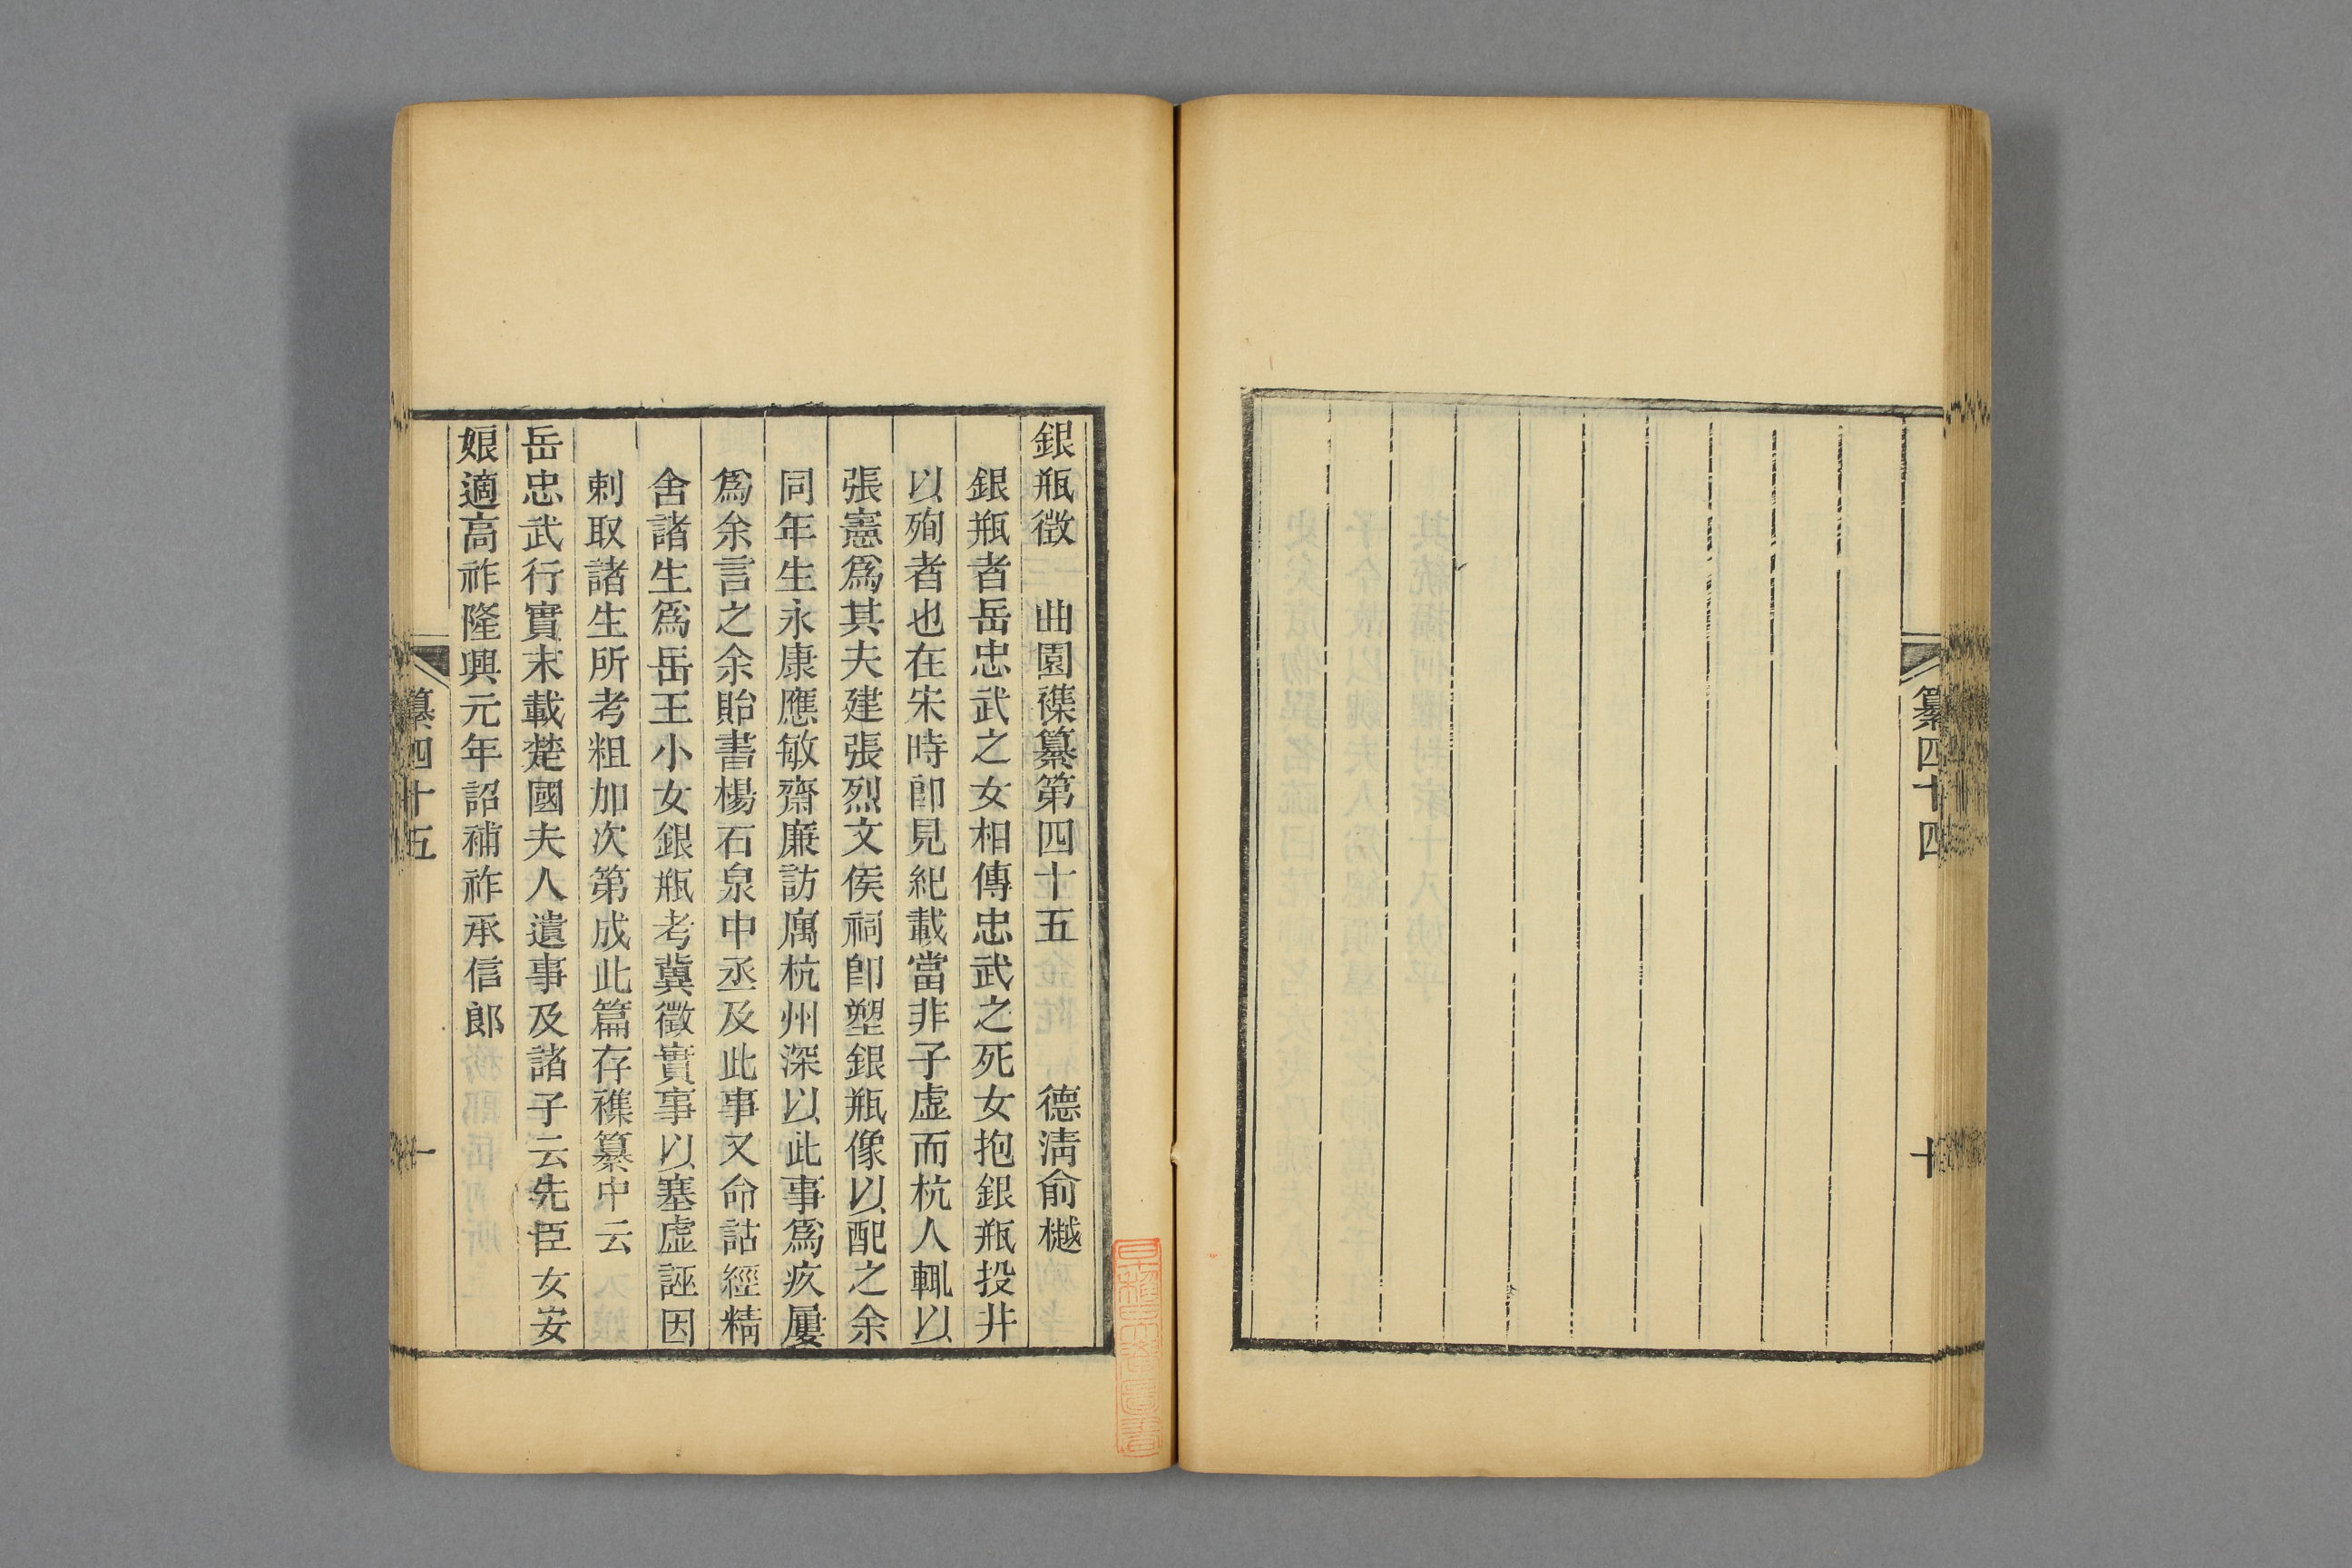 纂四十四
十
銀瓶徵　曲園襍纂第四十五　　　德淸俞樾
銀瓶者岳忠武之女相傳忠武之死女抱銀瓶投井
以殉者也在宋時卽見紀載當非子虛而杭人輒以
張憲爲其夫建張烈文侯祠卽塑銀瓶像以配之余
同年生永康應敏齋廉訪寓杭州深以此事爲疚屢
爲余言之余貽書楊石泉中丞及此事又命詁經精
舍諸生爲岳王小女銀瓶考冀徵實事以塞虛誣因
刺取諸生所考粗加次第成此篇存襍纂中云
岳忠武行實末載楚國夫人遺事及諸子云先臣女安
娘適高祚隆興元年詔補祚承信郎
纂四十五
一